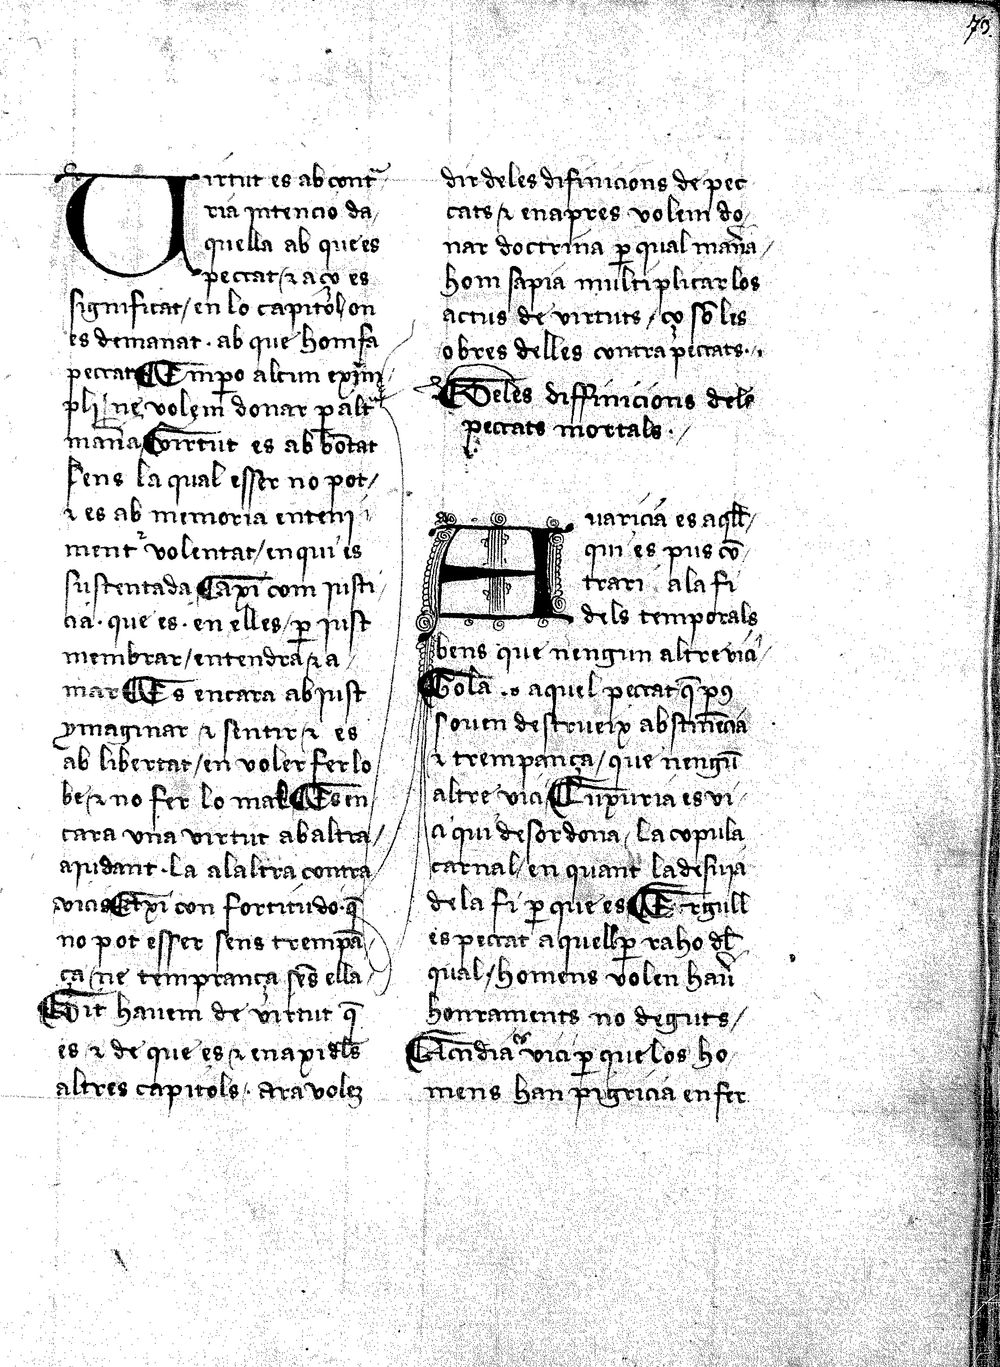 73
Uirtut es ab cont̃
ria intencio da
quella ab que es
peccat / ⁊ aço es
significat / en lo capitol on
es demanat · ab que hom fa
peccat Em̃po alcun exim
pli ne volem donar ꝑ alt̃
mana̅ Virtut es ab bo̅tat
sens la qual esser no pot /
⁊ es ab memoria enteni
ment ⁊ volentat / en qui es
sustentada Caxi com justi
cia · que es · en elles / ꝑ just
membrar / entendra / ⁊ a
mar Es encara ab just
ymaginar ⁊ sentir / ⁊ es
ab libertat / en voler fer lo
be / ⁊ no fer lo mal Es en
cara vna virtut ab altra /
ajudant · La al altra contra
vicis Etxi con fortitudo · q̅
no pot esser sens trempa̅
ça / ne temprança se̅s ella /
Dit hauem de virtut q̅
es ⁊ de que es ⁊ en axi dl̅s
altres capitols · Ara volẽ
dir de les difinicions de pec
cats ⁊ enapres volem do
nar doctrina ꝑ qual man̅a /
hom sapia multiplicar los
actus de virtuts / ço so̅ les
obres delles contra peccats · .
De les diffinicions dels
peccats mortals · /
Auaricia es aq̅ll /
qui es pus co̅
trari a la fi
dels temporals
bens que nengun altre vici /
Gola · es aquel peccat q̅ pus
souen destrueix abstine̅cia
⁊ trempança / que nengu̅
altre vici / Luxuria es vi
ci qui desordona / La copula
carnal / en quant la desuia
de la fi ꝑ que es Ergull
es peccat aquell ꝑ raho dl̅
qual / homens volen hau̅
honraments no deguts /
Caccidia es vici ꝑ que los ho
mens han pigricia en fer